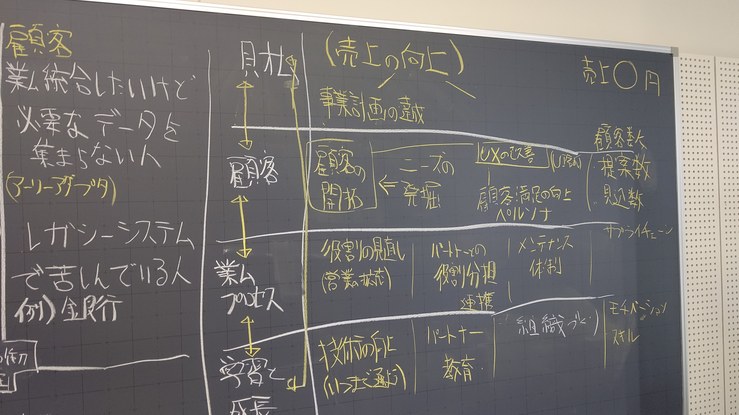 顧客
業ム統合したいけど
必要なデータを
集まらない人
(アーリーアダプタ)
レガシーシステム
で苦しんでいる人
例) 金銀行
財ム
顧客
業ム
プロセス
学習と
成長
(売上の向上)
売上〇円
事業計画の達成
顧客の
開拓
ニーズの
発掘
UXの改善
顧客満足の向上
ペルソナ
顧客数
提案数
見込数
役割の見直し
(営業の拡充)
パートナーとの
役割分担
連携
メンテナンス
体制
サプライチェーン
技術の向上
パートナー
教育
組織づくり
モチベーション
スキル